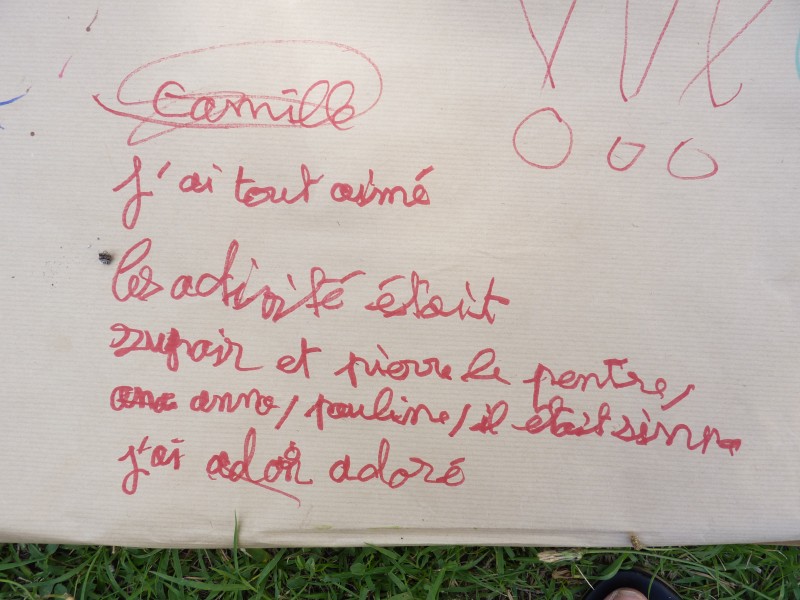 Camille
j'ai tout aimé
les activité était
supair et pierre le pentre,
anna, pauline, il était simpa
j'ai adoré
!!!